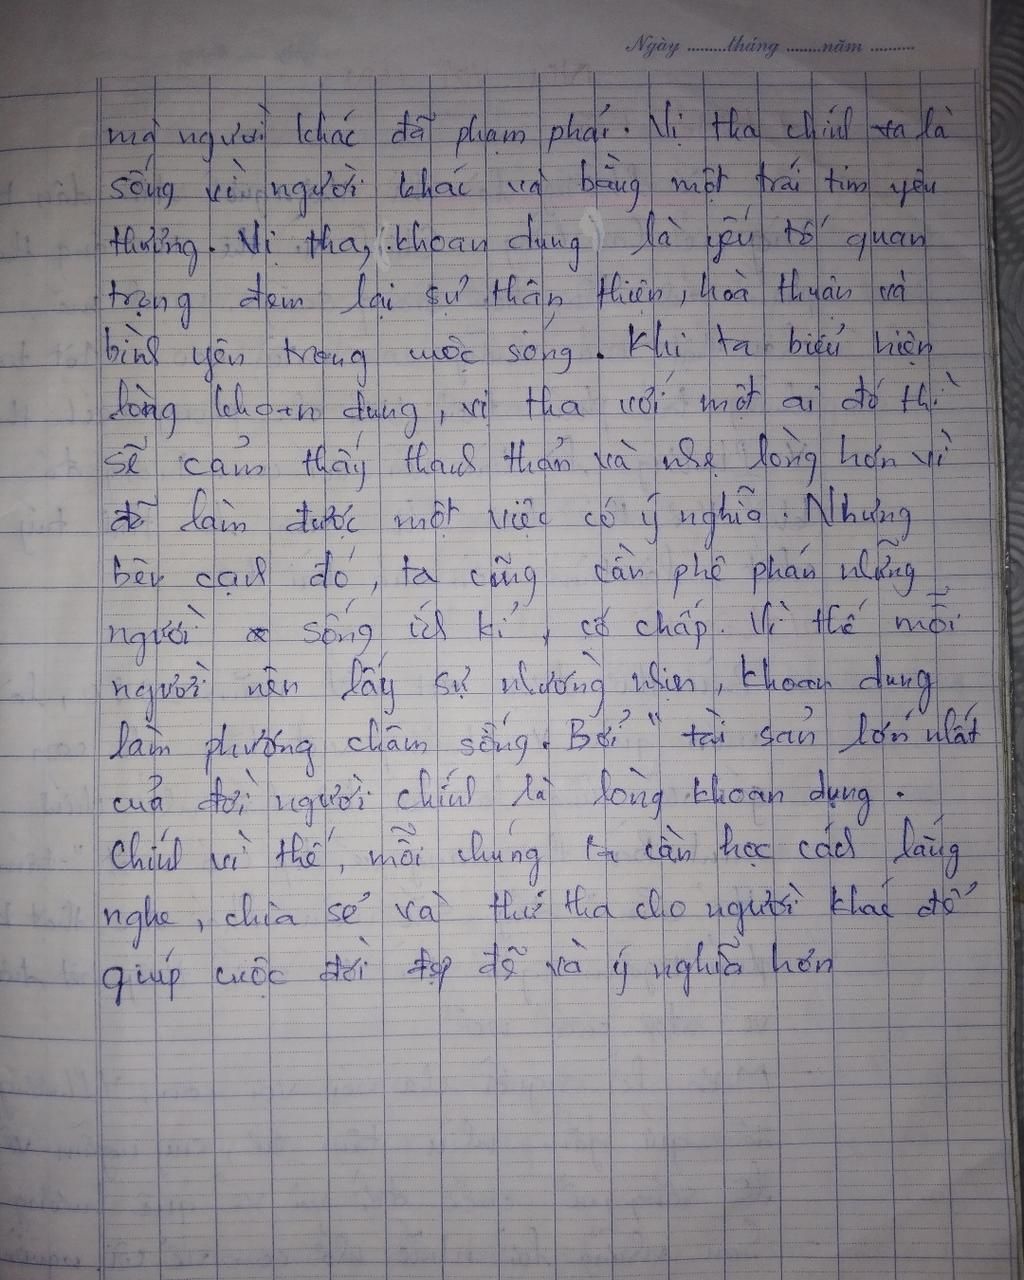 Ngày ........tháng .......năm .........
mà người khác đã phạm phải. Vị tha chính ta là
sống vì người khác và bằng một trái tim yêu
thương. Vị tha, khoan dung là yếu tố quan
trọng đem lại sự thân thiện, hoà thuận và
bình yên trong cuộc sống. Khi ta biểu hiện
lòng khoan dung, vị tha với một ai đó thì
sẽ cảm thấy thanh thản và nhẹ lòng hơn vì
đã làm được một việc có ý nghĩa. Nhưng
bên cạnh đó, ta cũng cần phê phán những
người sống ích kỉ, cố chấp. Vì thế mỗi
người nên lấy sự nhường nhịn, khoan dung
làm phương châm sống. Bởi " tài sản lớn nhất
của đời người chính là lòng khoan dung.
Chính vì thế, mỗi chúng ta cần học cách lắng
nghe, chia sẻ và thứ tha cho người khác để
giúp cuộc đời đẹp đẽ và ý nghĩa hơn